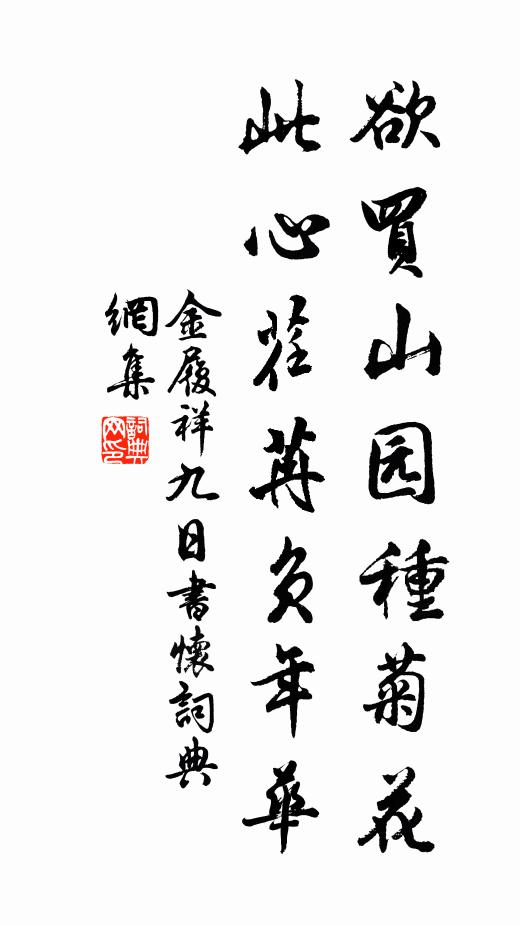 欲買山园種菊花
此心荏苒負年華
金履祥九日書懷詞典
網集
詞典網印